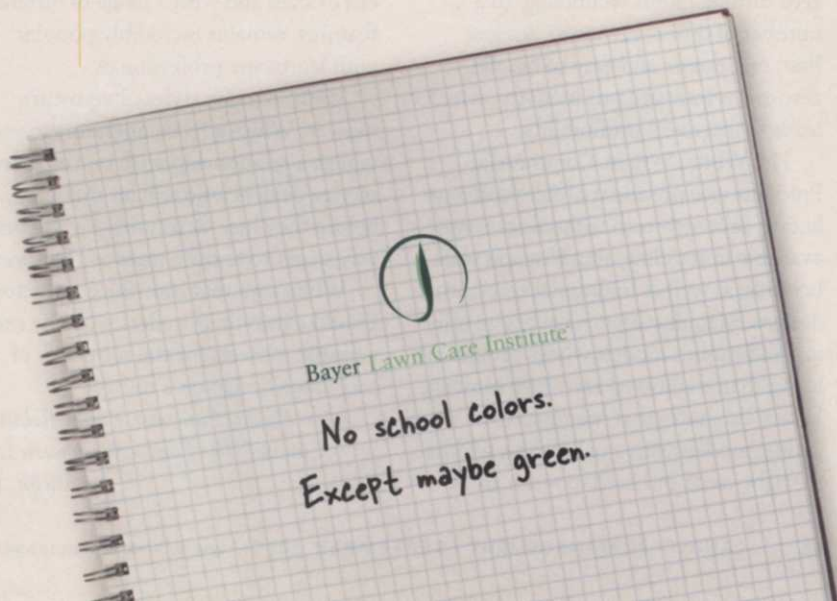 Bayer Lawn Care Institute
No school colors.
Except maybe green.